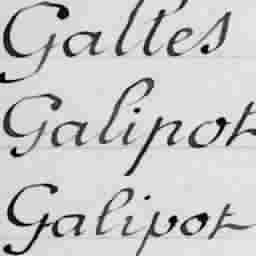 Galtes
Galipot
Galipot